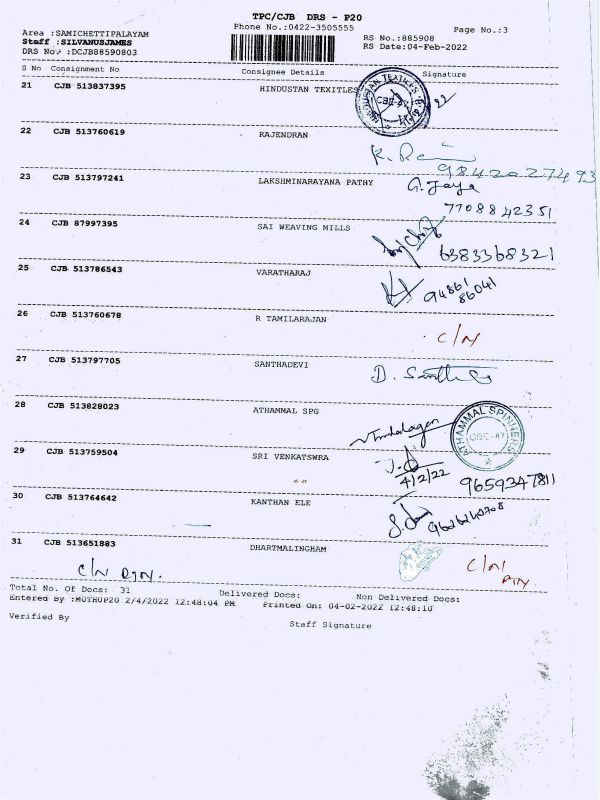 TPC/CJB DRS - P20
Phone No.:0422-3505555
Page No.:3
Area :SAMICHETTIPALAYAM
Staff :SILVANUSJAMES
DRS No. :DCJB88590803
RS No.:885908
RS Date:04-Feb-2022
S No Consignment No Consignee Details Signature
21 CJB 513837395 HINDUSTAN TEXITLES
22 CJB 513760619 RAJENDRAN
9842027493
23 CJB 513797241 LAKSHMINARAYANA PATHY G. Jaya
7708842351
24 CJB 87997395 SAI WEAVING MILLS
6383368321
25 CJB 513786543 VARATHARAJ
94861
86041
26 CJB 513760678 R TAMILARAJAN
C/N
27 CJB 513797705 SANTHADEVI
28 CJB 513828023 ATHAMMAL SPG
ATHAMMAL SPINNERS
CBE-47
29 CJB 513759504 SRI VENKATSWRA
4/2/22
9659347811
30 CJB 513764642 KANTHAN ELE
31 CJB 513651883 DHARTMALINGHAM
C/N
C/N
Total No. Of Docs: 31 Delivered Docs: Non Delivered Docs:
Entered By :MUTHUP20 2/4/2022 12:48:04 PM Printed On: 04-02-2022 12:48:10
Verified By
Staff Signature